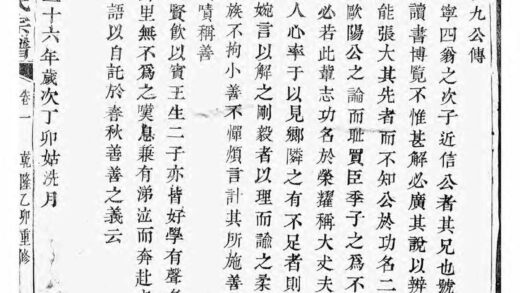 九公傳
寧四翁之次子近信公者其兄也號
讀書博覽不惟甚解必廣其說以辨
能張大其先者而不知公於功名二
歐陽公之論而耻買臣季子之為不
必若此輩志功名於榮耀稱大丈夫
人心率于以見鄉隣之有不足者則
婉言以解之剛毅者以理而諭之柔
族不拘小善不憚頻言計其所施善
嘖稱善
賢飲以賓王生二子亦皆好學有聲
里無不為之嘆息乗有涕泣而奔赴
語以自託於春秋善善之義云
二十六年歲次丁卯姑洗月
氏宗譜
卷一
乾隆乙卯重修